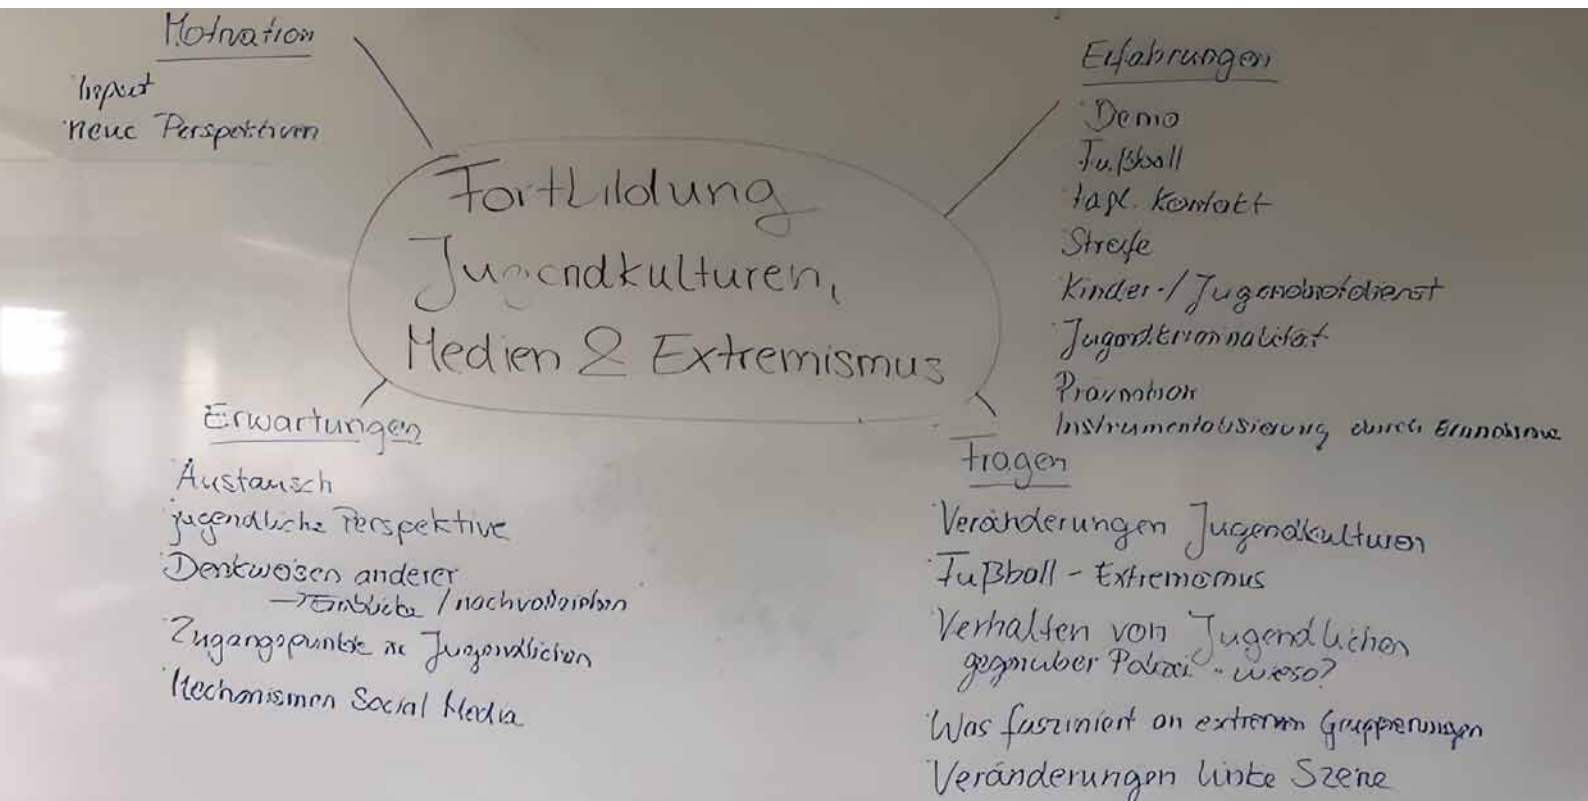 Motivation
Input
neue Perspektiven
Fortbildung
Jugendkulturen,
Medien & Extremismus
Erfahrungen
Demo
Fußball
tägl. Kontakt
Streife
Kinder-/Jugendnotdienst
Jugendkriminalität
Prävention
Instrumentalisierung durch
Erwartungen
Austausch
jugendliche Perspektive
Denkweisen anderer
→ Einblicke / nachvollziehen
Zugangspunkte zu Jugendlichen
Mechanismen Social Media
Fragen
Veränderungen Jugendkulturen
Fußball - Extremismus
Verhalten von Jugendlichen
gegenüber Polizei - wieso?
Was fasziniert an extremen Gruppierungen
Veränderungen linke Szene